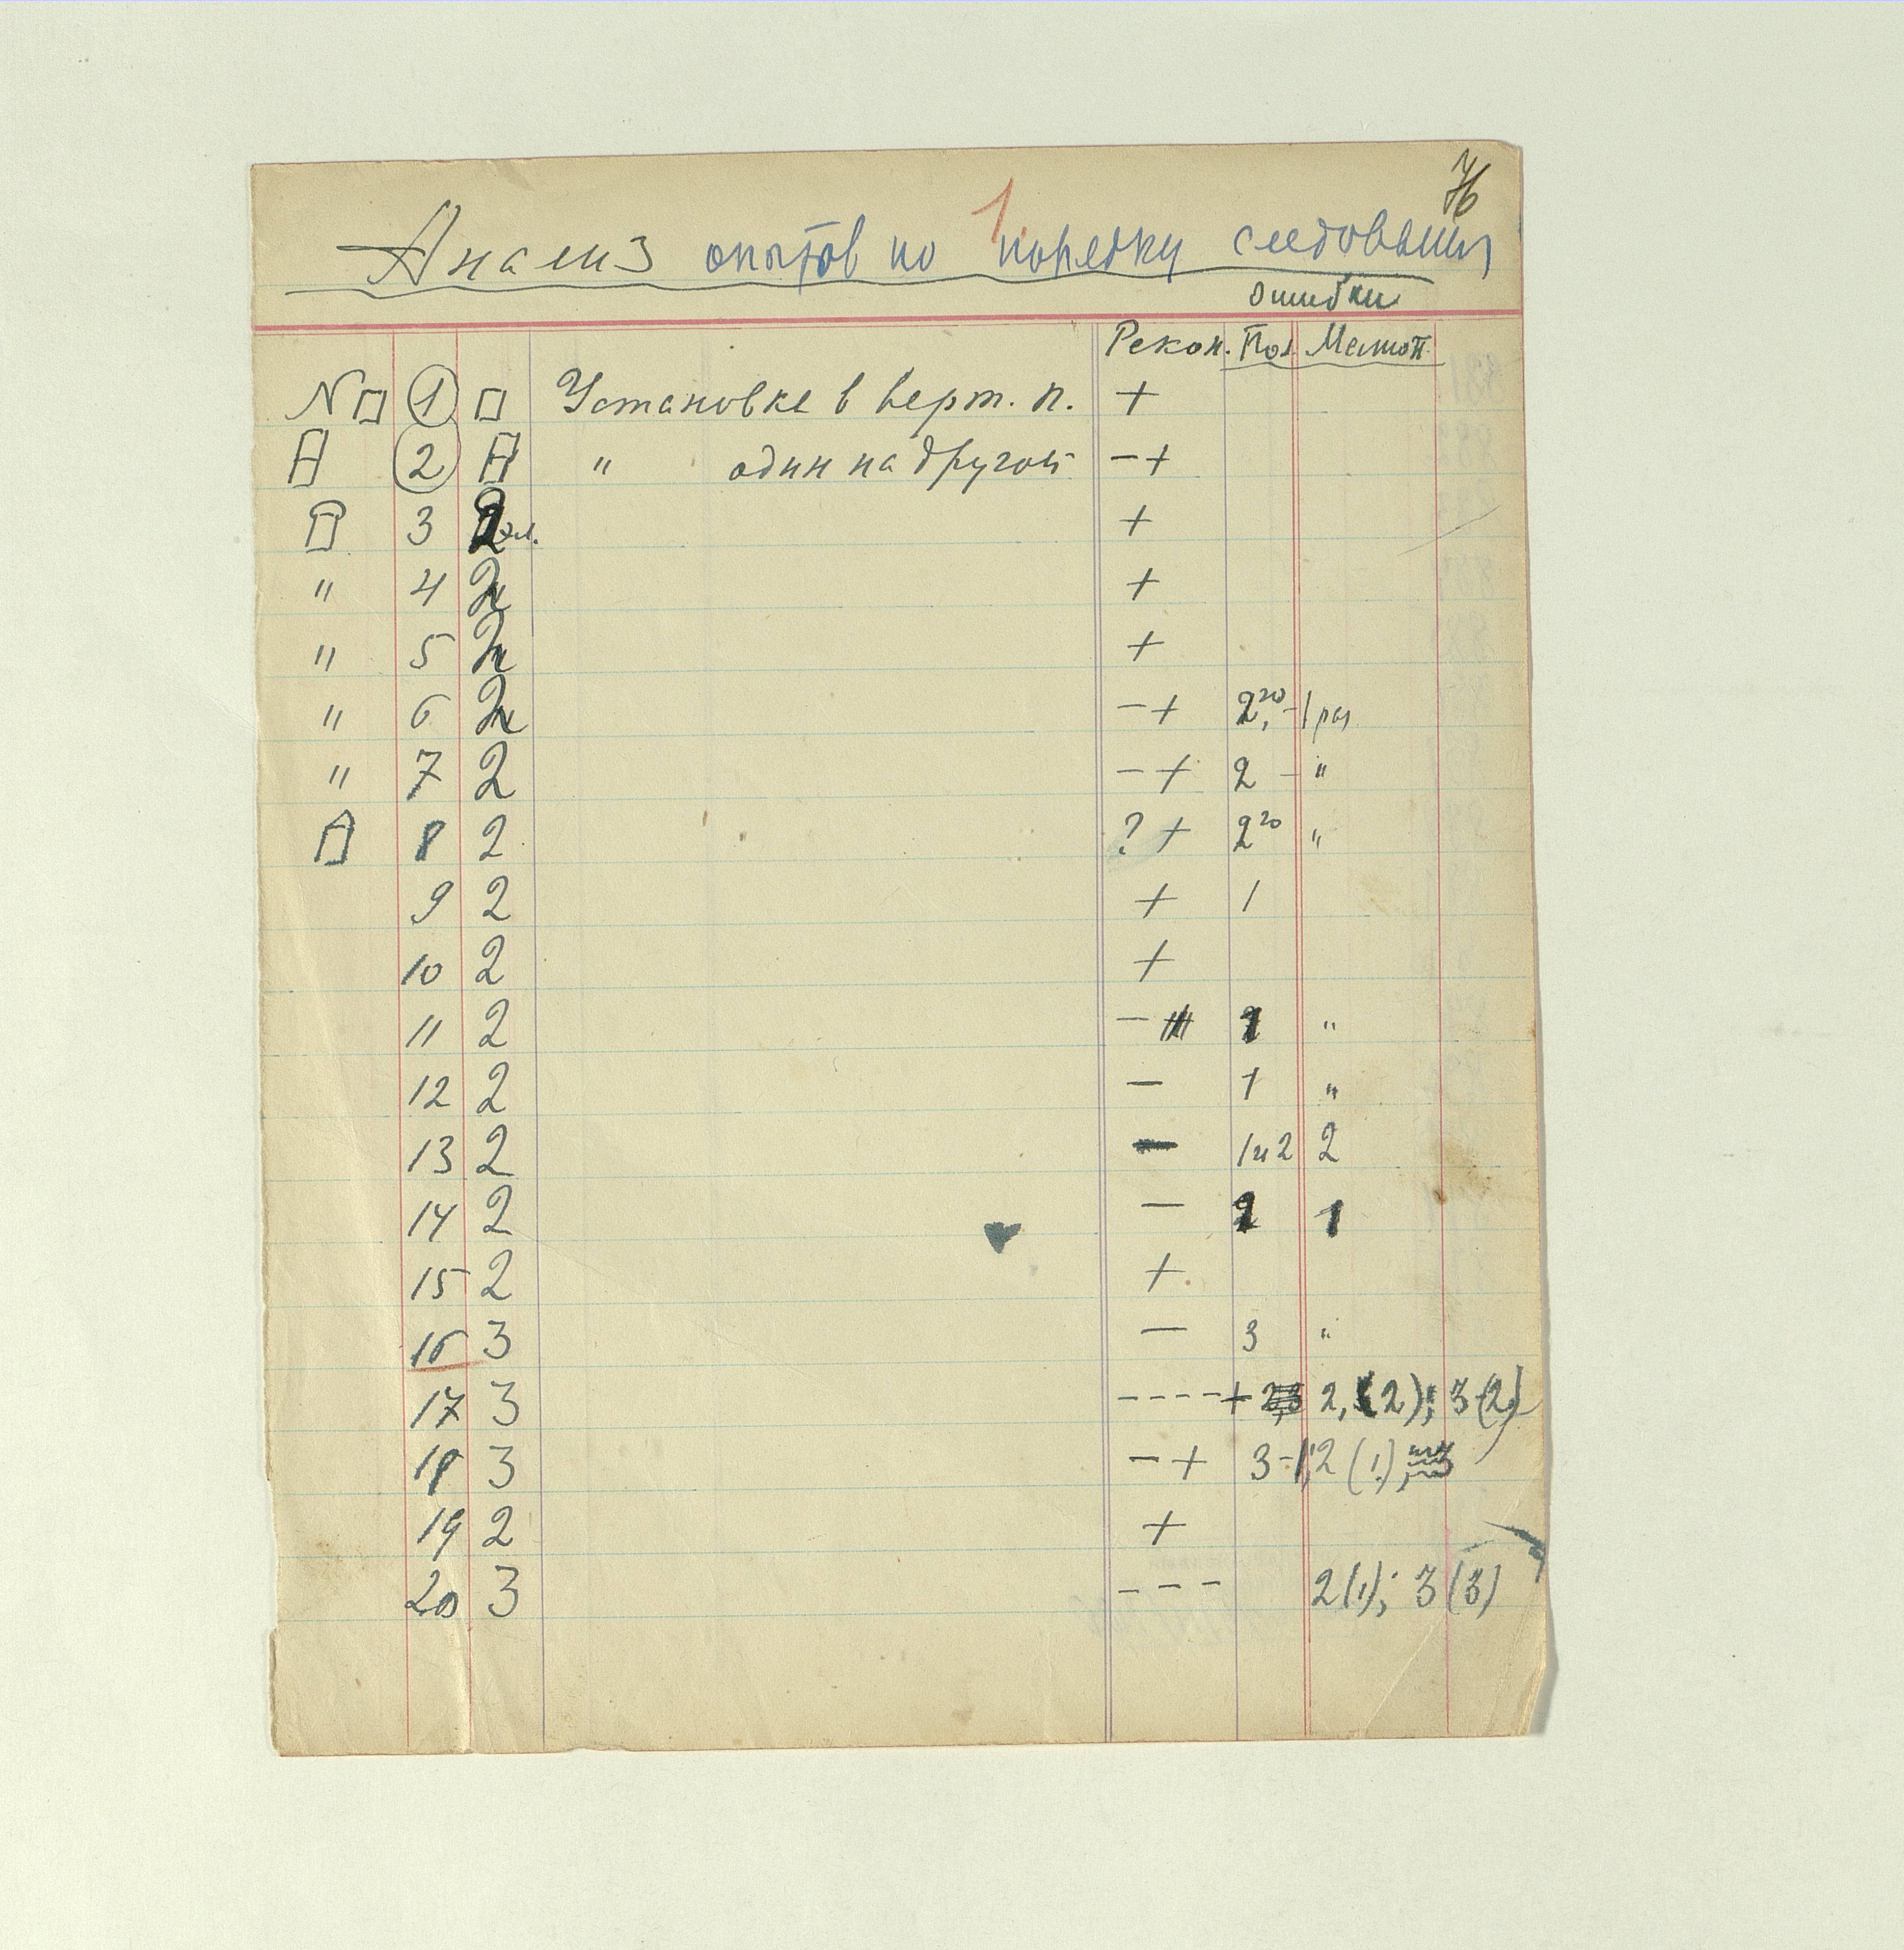 76
1
Анализ опытов по порядку следования
Ошибки
Рекон. Пол. Местоп.
N 1 Установка в верт. п. +
2 " один на другой - +
3 2 эл. +
" 4 2 +
" 5 2 +
" 6 2 - + 2, 20 - 1 раз
" 7 2 - + 2 - "
8 2 ? + 2 20 "
9 2 + 1
10 2 +
11 2 - 1 "
12 2 - 1 "
13 2 - 1 и 2 2
14 2 - 1 1
15 2 +
16 3 - 3 "
17 3 - - - - + 2, (2); 3 (2)
18 3 - + 3 - 1; 2 (1),
19 2 +
20 3 - - - 2 (1); 3 (3)